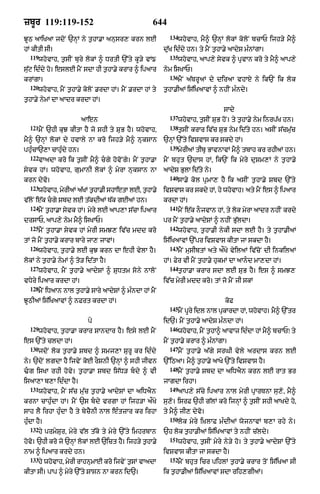 ਜ਼ਬੂਰ 119:119-152
644
ਝੂਠ ਆਖਿਆ ਜਦੋਂ ਉਨ੍ਹਾਂ ਨੇ ਤੁਹਾਡਾ ਅਨੁਸਰਣ ਕਰਨ ਲਈ
ਹਾਂ ਕੀਤੀ ਸੀ।
119ਯਹੋਵਾਹ, ਤੁਸੀਂ ਬੁਰੇ ਲੋਕਾਂ ਨੂੰ ਧਰਤੀ ਉੱਤੇ ਕੂੜੇ ਵਾਂਙ
ਸੁੱਟ ਦਿੰਦੇ ਹੋ। ਇਸਲਈ ਮੈਂ ਸਦਾ ਹੀ ਤੁਹਾਡੇ ਕਰਾਰ ਨੂੰ ਪਿਆਰ
ਕਰਾਂਗਾ।
120ਯਹੋਵਾਹ, ਮੈਂ ਤੁਹਾਡੇ ਕੋਲੋਂ ਡਰਦਾ ਹਾਂ। ਮੈਂ ਡਰਦਾ ਹਾਂ ਤੇ
ਤੁਹਾਡੇ ਨੇਮਾਂ ਦਾ ਆਦਰ ਕਰਦਾ ਹਾਂ।
ਆਇਨ
121ਮੈਂ ਉਹੀ ਕੁਝ ਕੀਤਾ ਹੈ ਜੋ ਸਹੀ ਤੇ ਸ਼ੁਭ ਹੈ। ਯਹੋਵਾਹ,
ਮੈਨੂੰ ਉਨ੍ਹਾਂ ਲੋਕਾਂ ਦੇ ਹਵਾਲੇ ਨਾ ਕਰੋ ਜਿਹੜੇ ਮੈਨੂੰ ਨੁਕਸਾਨ
ਪਹੁੰਚਾਉਣਾ ਚਾਹੁੰਦੇ ਹਨ।
122ਵਾਅਦਾ ਕਰੋ ਕਿ ਤੁਸੀਂ ਮੈਨੂੰ ਚੰਗੇ ਹੋਵੋਂਗੇ। ਮੈਂ ਤੁਹਾਡਾ
ਸੇਵਕ ਹਾਂ। ਯਹੋਵਾਹ, ਗੁਮਾਨੀ ਲੋਕਾਂ ਨੂੰ ਮੇਰਾ ਨੁਕਸਾਨ ਨਾ
ਕਰਨ ਦੇਵੋ।
123ਯਹੋਵਾਹ, ਮੇਰੀਆਂ ਅੱਖਾਂ ਤੁਹਾਡੀ ਸਹਾਇਤਾ ਲਈ, ਤੁਹਾਡੇ
ਵੱਲੋਂ ਇੱਕ ਚੰਗੇ ਸ਼ਬਦ ਲਈ ਤੱਕਦੀਆਂ ਥੱਕ ਗਈਆਂ ਹਨ।
124ਮੈਂ ਤੁਹਾਡਾ ਸੇਵਕ ਹਾਂ। ਮੇਰੇ ਲਈ ਆਪਣਾ ਸੱਚਾ ਪਿਆਰ
ਦਰਸਾਓ, ਆਪਣੇ ਨੇਮ ਮੈਨੂੰ ਸਿਖਾਓ।
125ਮੈਂ ਤੁਹਾਡਾ ਸੇਵਕ ਹਾਂ ਮੇਰੀ ਸਮਝਣ ਵਿੱਚ ਮਦਦ ਕਰੋ
ਤਾਂ ਜੋ ਮੈਂ ਤੁਹਾਡੇ ਕਰਾਰ ਬਾਰੇ ਜਾਣ ਜਾਵਾਂ।
126ਯਹੋਵਾਹ, ਤੁਹਾਡੇ ਲਈ ਕੁਝ ਕਰਨ ਦਾ ਇਹੀ ਵੇਲਾ ਹੈ।
ਲੋਕਾਂ ਨੇ ਤੁਹਾਡੇ ਨੇਮਾਂ ਨੂੰ ਤੋੜ ਦਿੱਤਾ ਹੈ।
127ਯਹੋਵਾਹ, ਮੈਂ ਤੁਹਾਡੇ ਆਦੇਸ਼ਾਂ ਨੂੰ ਸ਼ੁਧਤਮ ਸੋਨੇ ਨਾਲੋਂ
ਵਧੇਰੇ ਪਿਆਰ ਕਰਦਾ ਹਾਂ।
128ਮੈਂ ਧਿਆਨ ਨਾਲ ਤੁਹਾਡੇ ਸਾਰੇ ਆਦੇਸ਼ਾਂ ਨੂੰ ਮੰਨਦਾ ਹਾਂ ਮੈਂ
ਝੂਠੀਆਂ ਸਿੱਖਿਆਵਾਂ ਨੂੰ ਨਫ਼ਰਤ ਕਰਦਾ ਹਾਂ।
ਪੇ
129ਯਹੋਵਾਹ, ਤੁਹਾਡਾ ਕਰਾਰ ਸ਼ਾਨਦਾਰ ਹੈ। ਇਸੇ ਲਈ ਮੈਂ
ਇਸ ਉੱਤੇ ਚਲਦਾ ਹਾਂ।
130ਜਦੋਂ ਲੋਕ ਤੁਹਾਡੇ ਸ਼ਬਦ ਨੂੰ ਸਮਝਣਾ ਸ਼ੁਰੂ ਕਰ ਦਿੰਦੇ
ਨੇ। ਉਦੋਂ ਲਗਦਾ ਹੈ ਜਿਵੇਂ ਕੋਈ ਰੌਸ਼ਨੀ ਉਨ੍ਹਾਂ ਨੂੰ ਸਹੀ ਜੀਵਨ
ਢੰਗ ਸਿਖਾ ਰਹੀ ਹੋਵੇ। ਤੁਹਾਡਾ ਸ਼ਬਦ ਸਿੱਧੜ ਬੰਦੇ ਨੂੰ ਵੀ
ਸਿਆਣਾ ਬਣਾ ਦਿੰਦਾ ਹੈ।
131ਯਹੋਵਾਹ, ਮੈਂ ਸੱਚ ਮੁੱਚ ਤੁਹਾਡੇ ਆਦੇਸ਼ਾਂ ਦਾ ਅਧਿਐਨ
ਕਰਨਾ ਚਾਹੁੰਦਾ ਹਾਂ। ਮੈਂ ਉਸ ਬੰਦੇ ਵਰਗਾ ਹਾਂ ਜਿਹੜਾ ਔਖੇ
ਸਾਹ ਲੈ ਰਿਹਾ ਹੁੰਦਾ ਹੈ ਤੇ ਬੇਚੈਨੀ ਨਾਲ ਇੰਤਜ਼ਾਰ ਕਰ ਰਿਹਾ
ਹੁੰਦਾ ਹੈ।
132ਹੇ ਪਰਮੇਸ਼ੁਰ, ਮੇਰੇ ਵੱਲ ਤੱਕੋ ਤੇ ਮੇਰੇ ਉੱਤੇ ਮਿਹਰਬਾਨ
ਹੋਵੋ। ਉਹੀ ਕਰੋ ਜੋ ਉਨ੍ਹਾਂ ਲੋਕਾਂ ਲਈ ਉਚਿਤ ਹੈ। ਜਿਹੜੇ ਤੁਹਾਡੇ
ਨਾਮ ਨੂੰ ਪਿਆਰ ਕਰਦੇ ਹਨ।
133ਹੇ ਯਹੋਵਾਹ, ਮੇਰੀ ਰਾਹਨੁਮਾਈ ਕਰੋ ਜਿਵੇਂ ਤੁਸਾਂ ਵਾਅਦਾ
ਕੀਤਾ ਸੀ। ਪਾਪ ਨੂੰ ਮੇਰੇ ਉੱਤੇ ਸ਼ਾਸਨ ਨਾ ਕਰਨ ਦਿਓ।
134ਯਹੋਵਾਹ, ਮੈਨੂੰ ਉਨ੍ਹਾਂ ਲੋਕਾਂ ਕੋਲੋਂ ਬਚਾਓ ਜਿਹੜੇ ਮੈਨੂੰ
ਦੁੱਖ ਦਿੰਦੇ ਹਨ। ਤੇ ਮੈਂ ਤੁਹਾਡੇ ਆਦੇਸ਼ ਮੰਨਾਂਗਾ।
135ਯਹੋਵਾਹ, ਆਪਣੇ ਸੇਵਕ ਨੂੰ ਪ੍ਰਵਾਨ ਕਰੋ ਤੇ ਮੈਨੂੰ ਆਪਣੇ
ਨੇਮ ਸਿਖਾਓ।
136ਮੈਂ ਅੱਥਰੂਆਂ ਦੇ ਦਰਿਆ ਵਹਾਏ ਨੇ ਕਿਉਂ ਕਿ ਲੋਕ
ਤੁਹਾਡੀਆਂ ਸਿੱਖਿਆਵਾਂ ਨੂੰ ਨਹੀਂ ਮੰਨਦੇ।
ਸਾਦੇ
137ਯਹੋਵਾਹ, ਤੁਸੀਂ ਸ਼ੁਭ ਹੋ। ਤੇ ਤੁਹਾਡੇ ਨੇਮ ਨਿਰਪੱਖ ਹਨ।
138ਤੁਸੀਂ ਕਰਾਰ ਵਿੱਚ ਸ਼ੁਭ ਨੇਮ ਦਿੱਤੇ ਹਨ। ਅਸੀਂ ਸੱਚਮੁੱਚ
ਉਨ੍ਹਾਂ ਉੱਤੇ ਵਿਸ਼ਵਾਸ ਕਰ ਸਕਦੇ ਹਾਂ।
139ਮੇਰੀਆਂ ਤੀਬ੍ਰ ਭਾਵਨਾਵਾਂ ਮੈਨੂੰ ਤਬਾਹ ਕਰ ਰਹੀਆਂ ਹਨ।
ਮੈਂ ਬਹੁਤ ਉਦਾਸ ਹਾਂ, ਕਿਉਂ ਕਿ ਮੇਰੇ ਦੁਸ਼ਮਣਾਂ ਨੇ ਤੁਹਾਡੇ
ਆਦੇਸ਼ ਭੁਲਾ ਦਿੱਤੇ ਨੇ।
140ਸਾਡੇ ਕੋਲ ਪ੍ਰਮਾਣ ਹੈ ਕਿ ਅਸੀਂ ਤੁਹਾਡੇ ਸ਼ਬਦ ਉੱਤੇ
ਵਿਸ਼ਵਾਸ ਕਰ ਸਕਦੇ ਹਾਂ, ਹੇ ਯਹੋਵਾਹ। ਅਤੇ ਮੈਂ ਇਸ ਨੂੰ ਪਿਆਰ
ਕਰਦਾ ਹਾਂ।
141ਮੈਂ ਇੱਕ ਨੌਜਵਾਨ ਹਾਂ, ਤੇ ਲੋਕ ਮੇਰਾ ਆਦਰ ਨਹੀਂ ਕਰਦੇ
ਪਰ ਮੈਂ ਤੁਹਾਡੇ ਆਦੇਸ਼ਾਂ ਨੂੰ ਨਹੀਂ ਭੁੱਲਦਾ।
142ਯਹੋਵਾਹ, ਤੁਹਾਡੀ ਨੇਕੀ ਸਦਾ ਲਈ ਹੈ। ਤੇ ਤੁਹਾਡੀਆਂ
ਸਿੱਖਿਆਵਾਂ ਉੱਪਰ ਵਿਸ਼ਵਾਸ ਕੀਤਾ ਜਾ ਸਕਦਾ ਹੈ।
143ਮੈਂ ਮੁਸੀਬਤਾਂ ਅਤੇ ਔਖੇ ਵੇਲਿਆਂ ਵਿੱਚੋਂ ਦੀ ਨਿਕਲਿਆ
ਹਾਂ। ਫ਼ੇਰ ਵੀ ਮੈਂ ਤੁਹਾਡੇ ਹੁਕਮਾਂ ਦਾ ਆਨੰਦ ਮਾਣਦਾ ਹਾਂ।
144ਤੁਹਾਡਾ ਕਰਾਰ ਸਦਾ ਲਈ ਸ਼ੁਭ ਹੈ। ਇਸ ਨੂੰ ਸਮਝਣ
ਵਿੱਚ ਮੇਰੀ ਮਦਦ ਕਰੋ। ਤਾਂ ਜੋ ਮੈਂ ਜੀ ਸਕਾਂ
ਕੋਫ਼
145ਮੈਂ ਪੂਰੇ ਦਿਲ ਨਾਲ ਪੁਕਾਰਦਾ ਹਾਂ, ਯਹੋਵਾਹ। ਮੈਨੂੰ ਉੱਤਰ
ਦਿਓ। ਮੈਂ ਤੁਹਾਡੇ ਆਦੇਸ਼ ਮੰਨਦਾ ਹਾਂ।
146ਯਹੋਵਾਹ, ਮੈਂ ਤੁਹਾਨੂੰ ਆਵਾਜ਼ ਦਿੰਦਾ ਹਾਂ ਮੈਨੂੰ ਬਚਾਓ! ਤੇ
ਮੈਂ ਤੁਹਾਡੇ ਕਰਾਰ ਨੂੰ ਮੰਨਾਂਗਾ।
147ਮੈਂ ਤੁਹਾਡੇ ਅੱਗੇ ਸਰਘੀ ਵੇਲੇ ਅਰਦਾਸ ਕਰਨ ਲਈ
ਉੱਠਿਆ। ਮੈਨੂੰ ਤੁਹਾਡੇ ਆਖੇ ਉੱਤੇ ਵਿਸ਼ਵਾਸ ਹੈ।
148ਮੈਂ ਤੁਹਾਡੇ ਸ਼ਬਦ ਦਾ ਅਧਿਐਨ ਕਰਨ ਲਈ ਰਾਤ ਭਰ
ਜਾਗਦਾ ਰਿਹਾ।
149ਆਪਣੇ ਸੱਚੇ ਪਿਆਰ ਨਾਲ ਮੇਰੀ ਪ੍ਰਾਰਥਨਾ ਸੁਣੋ, ਮੈਨੂੰ
ਸੁਣੋ। ਸਿਰਫ਼ ਉਹੀ ਗੱਲਾਂ ਕਰੋ ਜਿਨ੍ਹਾਂ ਨੂੰ ਤੁਸੀਂ ਸਹੀ ਆਖਦੇ ਹੋ,
ਤੇ ਮੈਨੂੰ ਜੀਣ ਦੇਵੋ।
150ਲੋਕ ਮੇਰੇ ਖ਼ਿਲਾਫ਼ ਮੰਦੀਆਂ ਯੋਜਨਾਵਾਂ ਬਣਾ ਰਹੇ ਨੇ।
ਉਹ ਲੋਕ ਤੁਹਾਡੀਆਂ ਸਿੱਖਿਆਵਾਂ ਤੇ ਨਹੀਂ ਚੱਲਦੇ।
151ਯਹੋਵਾਹ, ਤੁਸੀਂ ਮੇਰੇ ਨੇੜੇ ਹੋ। ਤੇ ਤੁਹਾਡੇ ਆਦੇਸ਼ਾਂ ਉੱਤੇ
ਵਿਸ਼ਵਾਸ ਕੀਤਾ ਜਾ ਸਕਦਾ ਹੈ।
152ਮੈਂ ਬਹੁਤ ਚਿਰ ਪਹਿਲਾਂ ਤੁਹਾਡੇ ਕਰਾਰ ਤੋਂ ਸਿੱਖਿਆ ਸੀ
ਕਿ ਤੁਹਾਡੀਆਂ ਸਿੱਖਿਆਵਾਂ ਸਦਾ ਰਹਿਣਗੀਆਂ।